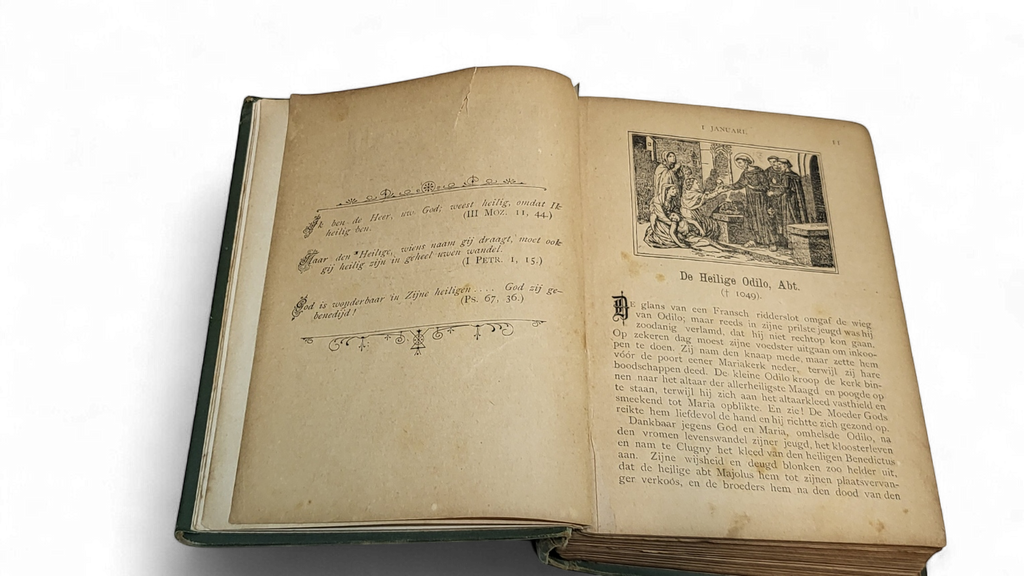 Ik ben de Heer, uw God; weest heilig, omdat Ik
heilig ben. (III Moz. 11, 44.)
Naar den Heilige, wiens naam gij draagt, moet ook
gij heilig zijn in geheel uwen wandel.
(I Petr. 1, 15.)
God is wonderbaar in Zijne heiligen..... God zij ge-
benedijd! (Ps. 67, 36.)
1 JANUARI.
11
De Heilige Odilo, Abt.
(† 1049).
DE glans van een Fransch ridderslot omgaf de wieg
van Odilo; maar reeds in zijne prilste jeugd was hij
zoodanig verlamd, dat hij niet rechtop kon gaan.
Op zekeren dag moest zijne voedster uitgaan om inkoo-
pen te doen. Zij nam den knaap mede, maar zette hem
vóór de poort eener Mariakerk neder, terwijl zij hare
boodschappen deed. De kleine Odilo kroop de kerk bin-
nen naar het altaar der allerheiligste Maagd en poogde op
te staan, terwijl hij zich aan het altaarkleed vasthield en
smeekend tot Maria opblikte. En zie! De Moeder Gods
reikte hem liefdevol de hand en hij richtte zich gezond op.
Dankbaar jegens God en Maria, omhelsde Odilo, na
den vromen levenswandel zijner jeugd, het kloosterleven
en nam te Clugny het kleed van den heiligen Benedictus
aan. Zijne wijsheid en deugd blonken zoo helder uit,
dat de heilige abt Majolus hem tot zijnen plaatsvervan-
ger verkoós, en de broeders hem na den dood van den